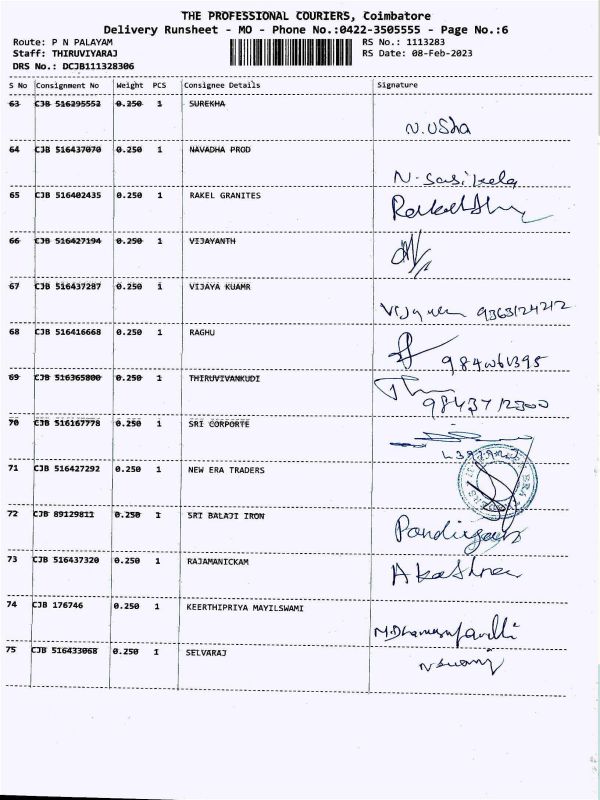 THE PROFESSIONAL COURIERS, Coimbatore
Delivery Runsheet - MO - Phone No.:0422-3505555 - Page No.:6
Route: P N PALAYAM RS No.: 1113283
Staff: THIRUVIYARAJ RS Date: 08-Feb-2023
DRS No.: DCJB111328306
S No Consignment No Weight PCS Consignee Details Signature
63 CJB 516295552 0.250 1 SUREKHA
N.USha
64 CJB 516437070 0.250 1 NAVADHA PROD
N. Sasikela
65 CJB 516402435 0.250 1 RAKEL GRANITES
66 CJB 516427194 0.250 1 VIJAYANTH
67 CJB 516437287 0.250 1 VIJAYA KUAMR
9363124212
68 CJB 516416668 0.250 1 RAGHU
69 CJB 516365800 0.250 1 THIRUVIVANKUDI
70 CJB 516167778 0.250 1 SRI CORPORTE
71 CJB 516427292 0.250 1 NEW ERA TRADERS
72 CJB 89129811 0.250 1 SRI BALAJI IRON
73 CJB 516437320 0.250 1 RAJAMANICKAM
74 CJB 176746 0.250 1 KEERTHIPRIYA MAYILSWAMI
75 CJB 516433068 0.250 1 SELVARAJ